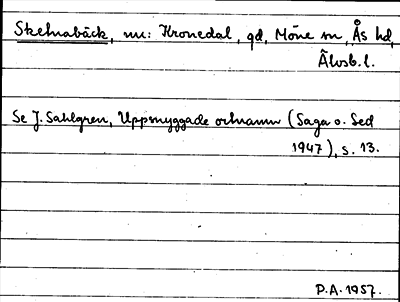 Skelnabäck, nu: Kronedal, gd, Möne sn, Ås hd,
Älvsb. l.
Se J. Sahlgren, Uppsnyggade ortnamn (Saga o. Sed
1947), s. 13.
P.A. 1957.